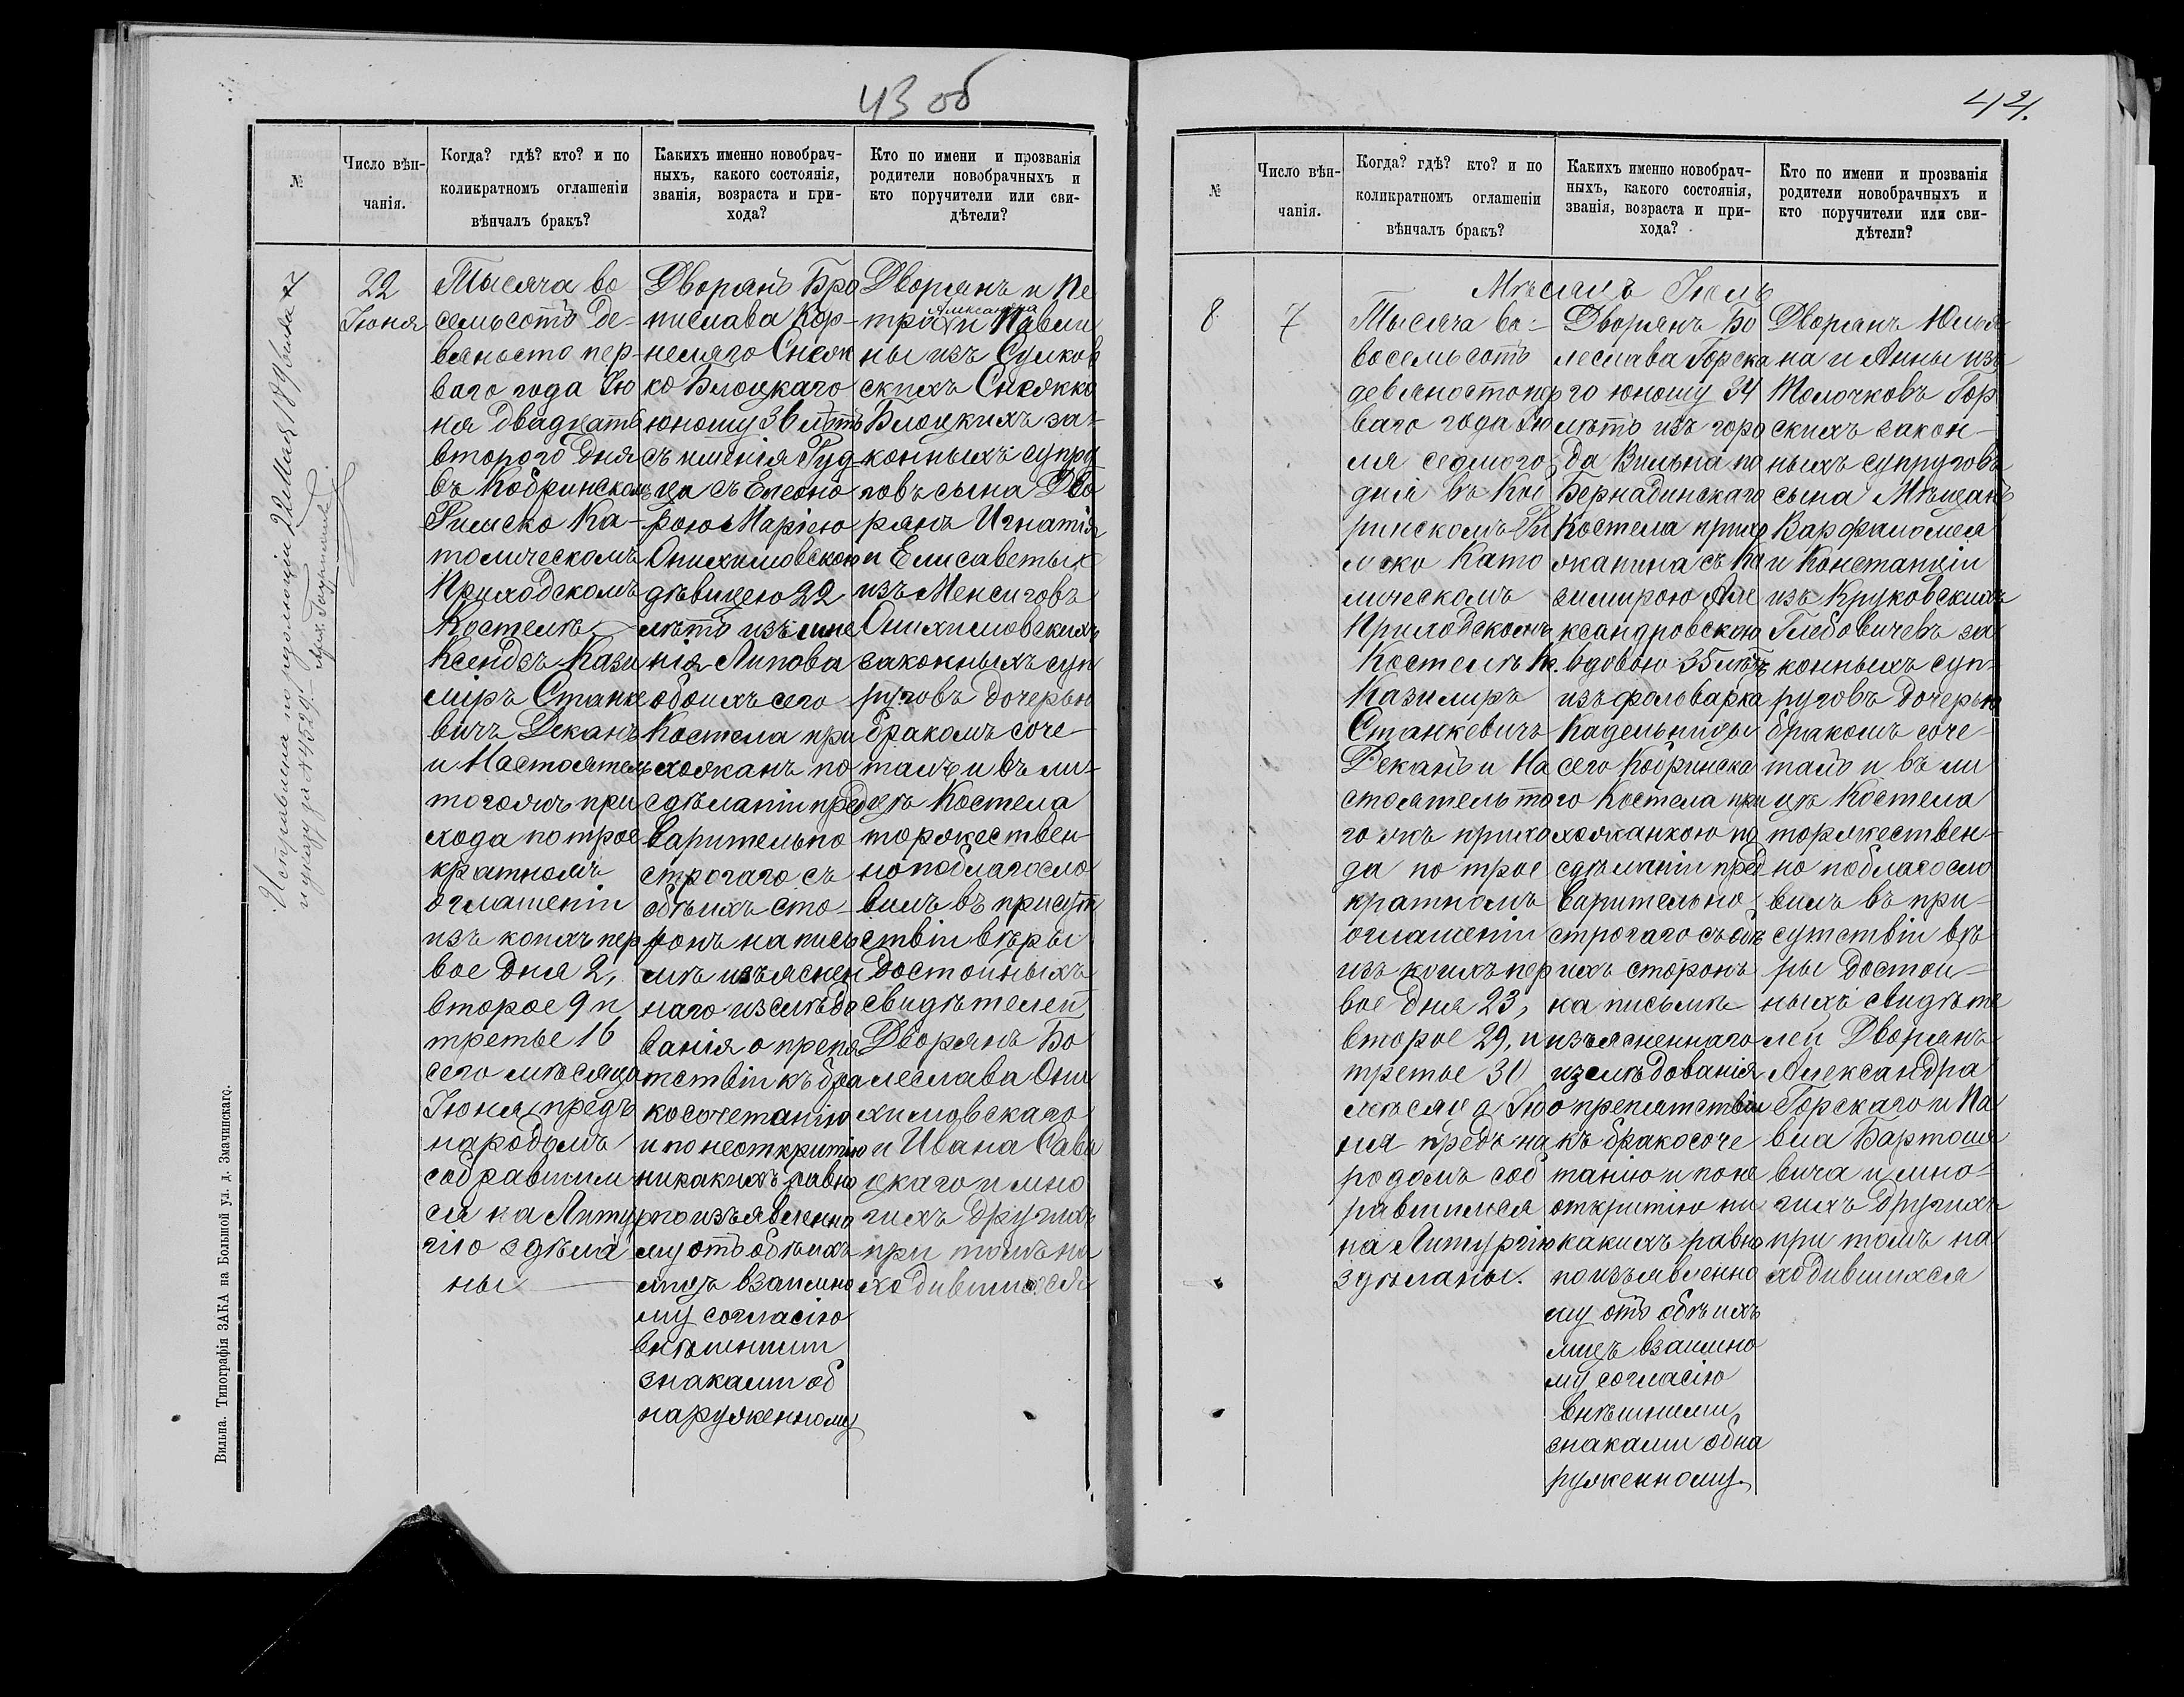 43 об
№
Число вѣн-
чанія.
Когда? гдѣ? кто? и по
коликратномъ оглашеніи
вѣнчалъ бракъ?
Какихъ именно новобрач-
ныхъ, какого состоянія,
званія, возраста и при-
хода?
Кто по имени и прозванія
родители новобрачныхъ и
кто поручители или сви-
дѣтели?
7
22
Іюня
Тысяча во
семьсотъ де-
вяносто пер-
ваго года Ію
ня двадцать
второго дня
въ Кобринскомъ
Римско Ка-
толическомъ
Приходскомъ
Костелѣ
Ксендзъ Кази
міръ Станке
вичъ Деканъ
и Настоятель
тогожъ при
хода по трое
кратномъ
оглашеніи
изъ коихъ пер
вое дня 2,
второе 9 и
третье 16
сего мѣсяца
Іюня предъ
народомъ
собравшим
ся на Литур
гію здѣла
ны
Дворянъ Бро
нислава Кор-
неляго Снеж
ко Блоцкаго
юношу 36 лѣтъ
съ имѣнія Гуд
ца съ Елеоно
рою Маріею
Онихимовскою
дѣвицею 22
лѣтъ изъ имѣ
нія Липова
обоихъ сего
Костела при
хожанъ по
сдѣланіи пред
варительно
строгаго съ
обѣихъ сто-
ронъ на пись
мѣ изъяснен
наго изслѣдо
ванія о препя
тствіи къ бра
косочетанію
и по неоткритію
никакихъ равно
по изъявленно
му отъ обѣихъ
лицъ взаимно
му согласію
внѣшними
знаками об
наруженному
Дворянъ и Пе
Александра
тра и Павли
ны изъ Сулков
скихъ Снежко
Блоцкихъ за-
конныхъ супру
говъ сына Дво
рянъ Игнатія
и Елисаветы
изъ Менсиговъ
Онихимовскихъ
законныхъ суп
руговъ дочерью
бракомъ соче-
талъ и въ ли-
цѣ Костела
торжествен-
но поблагосло
вилъ въ присут
ствіи вѣры
достойныхъ
свидѣтелей
Дворянъ Бо
леслава Они
химовскаго
и Ивана Сави
цкаго и мно
гихъ другихъ
при томъ на
ходившихся
Исправлена по резолюціи
за № 4529.
Вильна. Типографія ЗАКА на Большой ул. д. Змачинскаго.
44.
№
Число вѣн-
чанія.
Когда? гдѣ? кто? и по
коликратномъ оглашеніи
вѣнчалъ бракъ?
Какихъ именно новобрач-
ныхъ, какого состоянія,
званія, возраста и при-
хода?
Кто по имени и прозванія
родители новобрачныхъ и
кто поручители или сви-
дѣтели?
Мѣсяцъ Іюль
8
7
Тысяча во-
восемьсотъ
девяносто пер
ваго года Ію
ля седмого
дня въ Коб
ринскомъ Ри
мско Като
лическомъ
Приходскомъ
Костелѣ К.
Казимиръ
Станкевичъ
Деканъ и На
стоятель то
го жъ прихо
да по трое
кратномъ
оглашеніи
изъ коихъ пер
вое дня 23,
второе 29, и
третье 30
мѣсяца Ію
ня предъ на
родомъ соб
равшимся
на Литургію
здѣланы.
Дворянъ Бо
леслава Горска
го юношу 34
лѣтъ изъ горо
да Вильна по
Бернадинскаго
Костела прихо
жанина съ Ка
зимирою Але
ксандровскою
вдовою 35 лѣтъ
изъ фольварка
Кадельницы
сего Кобринска
го Костела при
хожанкою по
сдѣланіи пред
варительно
строгаго съ обѣ
ихъ сторонъ
на письмѣ
изъясненнаго
изслѣдованія
о препятствіи
къ бракосоче
танію и по не
откритію ни
какихъ равно
по изъявленно
му отъ обѣихъ
лицъ взаимно
му согласію
внѣшними
знаками обна
руженному.
Дворянъ Юлья
на и Анны изъ
Молочковъ Гор
скихъ закон-
ныхъ супруговъ
сына Мѣщанъ
Варфаломея
и Констанціи
изъ Круковскихъ
Глебовичевъ за
конныхъ суп-
руговъ дочерью
бракомъ соче-
талъ и въ ли
цѣ Костела
торжествен-
но поблагосло
вилъ въ при-
сутствіи вѣ
ры достой-
ныхъ свидѣте
лей Дворянъ
Александра
Горскаго и Па
вла Бартоше
вича и мно-
гихъ другихъ
при томъ на
ходившихся